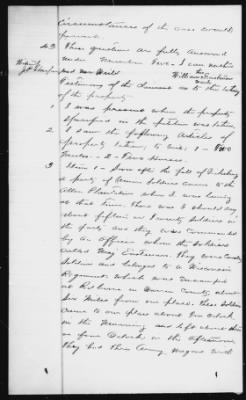 Circumstances of the case would
permit.
43 These questions are fully answered
under number Five - I can neither
read nor write
William his
mark
Testimony of the claimant as to the taking
of the property.
1 I was present when the property
specified in the petition was taken
2 I saw the following articles of
property taken, to wit: 1 - Two
2 - Two Horses.
3 Item 1 - Soon after the fall of Vicksburg
a party of Union soldiers came to the
Allen Plantation where I was living
at that time. There was I should say
about fifteen or twenty soldiers in
the party and they was commanded
by an Officer whom the soldiers
called They was Cavalry
Soldiers and belonged to a Wisconsin
Regiment which was encamped
at in Warren County, about
Six Miles from our place. These Soldiers
came to our place about ten o'clock
in the Morning and left about three
or four o'clock in the afternoon.
They had three Army wagons with